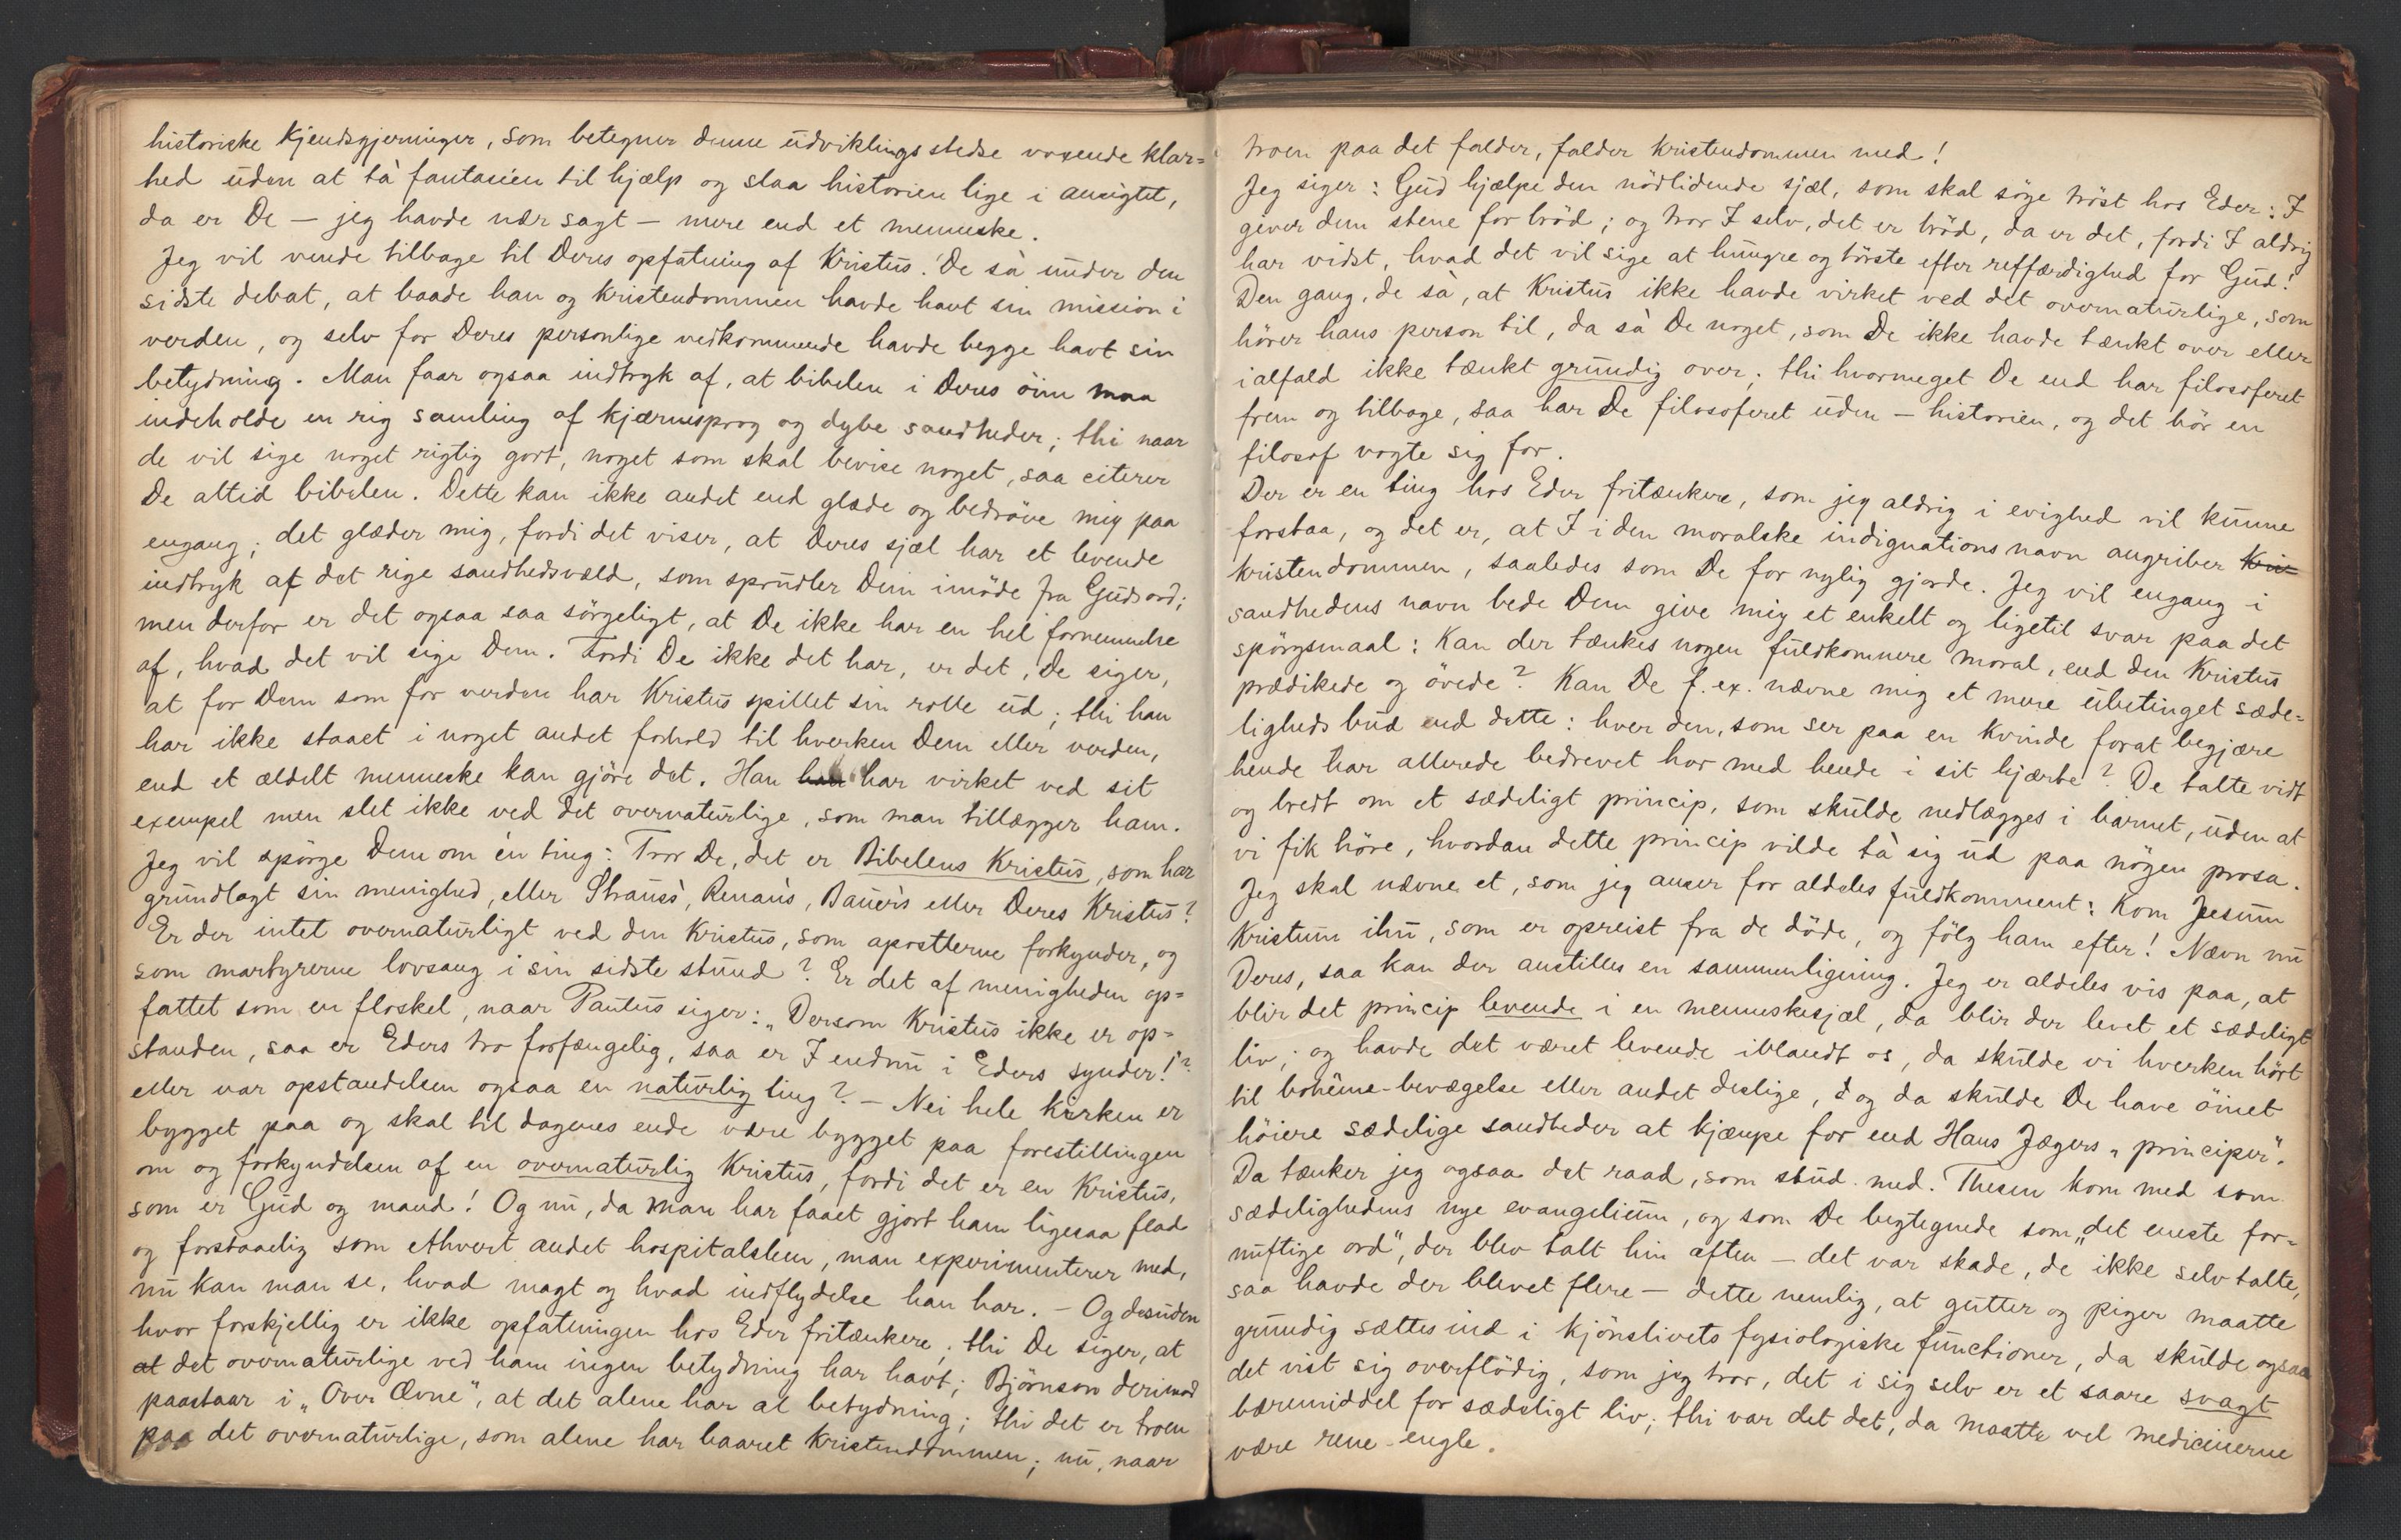 historiske kjendsgjerninger, som betegner denne udviklings stedse voxende klar=
hed uden at tà fantasien til hjælp og slaa historien lige i ansigtet,
da er De — jeg havde nær sagt — mere end et menneske.
Jeg vil vende tilbage til Deres opfatning af Kristus. De sà under den
sidste debat, at baade han og kristendommen havde havt sin mission i
verden, og selv for Deres personlige vedkommende havde begge havt sin
betydning. Man faar ogsaa indtryk af, at bibelen i Deres öine maa
indeholde en rig samling af kjærnesprog og dybe sandheder; thi naar
de vil sige noget rigtig godt, noget som skal bevise noget, saa citerer
De altid bibelen. Dette kan ikke andet end glæde og bedröve mig paa
engang; det glæder mig, fordi det viser, at Deres sjæl har et levende
indtryk af det rige sandhedsvæld, som sprudler Dem imöde fra Guds ord;
men derfor er det ogsaa saa sörgeligt, at De ikke har en hel fornemmelse
af, hvad det vil sige Dem. Fordi De ikke det har, er det, De siger,
at for Dem som for verden har Kristus spillet sin rolle ud; thi han
har ikke staaet i noget andet forhold til hverken Dem eller verden,
end et ældelt menneske kan gjöre det. Han han har virket ved sit
exempel men slet ikke ved det overnaturlige, som man tillægger ham.
Jeg vil spörge Dem om én ting: Tror De, det er Bibelens Kristus, som har
grundlagt sin menighed, eller Strauss's, Renan's, Bauer's eller Deres Kristus?
Er der intet overnaturligt ved den Kristus, som apostlerne forkynder, og
som martyrerne lovsang i sin sidste stund? Er det af menigheden op=
fattet som en floskel, naar Paulus siger: „Dersom Kristus ikke er op=
standen, saa er Eders tro forfængelig, saa er I endnu i Eders synder!"?
eller var opstandelsen ogsaa en naturlig ting? — Nei hele kirken er
bygget paa og skal til dagenes ende være bygget paa forestillingen
om og forkyndelsen af en overnaturlig Kristus, fordi det er en Kristus,
som er Gud og mand! Og nu, da man har faaet gjort ham ligesaa flad
og forstaaelig som ethvert andet hospitalslem, man experimenterer med,
nu kan man se, hvad magt og hvad indflydelse han har. — Og desuden
hvor forskjellig er ikke opfatningen hos Eder fritænkere; thi De siger, at
at det overnaturlige ved ham ingen betydning har havt; Björnson derimod
paastaar i „Over Ævne", at det alene har al betydning; thi det er troen
paa det overnaturlige, som alene har baaret kristendommen; nu, naar
troen paa det falder, falder kristendommen med!
Jeg siger: Gud hjælpe den nödlidende sjæl, som skal söge tröst hos Eder: I
giver dem stene for bröd; og tror I selv, det er bröd, da er det, fordi I aldrig
har vidst, hvad det vil sige at hungre og törste efter retfærdighed for Gud!
Den gang, de sà, at Kristus ikke havde virket ved det overnaturlige, som
hörer hans person til, da sà De noget, som De ikke havde tænkt over eller
ialfald ikke tænkt grundig over; thi hvormeget De end har filosoferet
frem og tilbage, saa har De filosoferet uden — historien, og det bör en
filosof vogte sig for.
Der er en ting hos Eder fritænkere, som jeg aldrig i evighed vil kunne
forstaa, og det er, at I i den moralske indignations navn angriber Kri
kristendommen, saaledes som De for nylig gjorde. Jeg vil engang i
sandhedens navn bede Dem give mig et enkelt og ligetil svar paa det
spörgsmaal: Kan der tænkes nogen fuldkomnere moral, end den Kristus
prædikede og övede? Kan De f. ex. nævne mig et mere ubetinget sæde=
ligheds bud end dette: hver den, som ser paa en kvinde forat begjære
hende har allerede bedrevet hor med hende i sit hjærte? De talte vidt
og bredt om et sædeligt princip, som skulde nedlægges i barnet, uden at
vi fik höre, hvordan dette princip vilde tà sig ud paa nögen prosa.
Jeg skal nævne et, som jeg anser for aldeles fuldkomment: Kom Jesum
Kristum ihu, som er opreist fra de döde, og fölg ham efter! Nævn nu
Deres, saa kan der anstilles en sammenligning. Jeg er aldeles vis paa, at
blir det princip levende i en menneskesjæl, da blir der levet et sædeligt
liv; og havde det været levende iblandt os, da skulde vi hverken hört
til bohême-bevægelse eller andet deslige, og da skulde De have öinet
höiere sædelige sandheder at kjæmpe for end Hans Jægers „principer".
Da tænker jeg ogsaa det raad, som stud. med. Thesen kom med som
sædelighedens nye evangelium, og som De begtegnede som „det eneste for=
nuftige ord", der blev talt hin aften — det var skade, de ikke selv talte,
saa havde der blevet flere — dette nemlig, at gutter og piger maatte
grundig sættes ind i kjönslivets fysiologiske functioner, da skulde ogsaa
det vist sig overflödig, som jeg tror, det i sig selv er et saare svagt
bæremiddel for sædeligt liv; thi var det det, da maatte vel medicinerne
være rene engle.